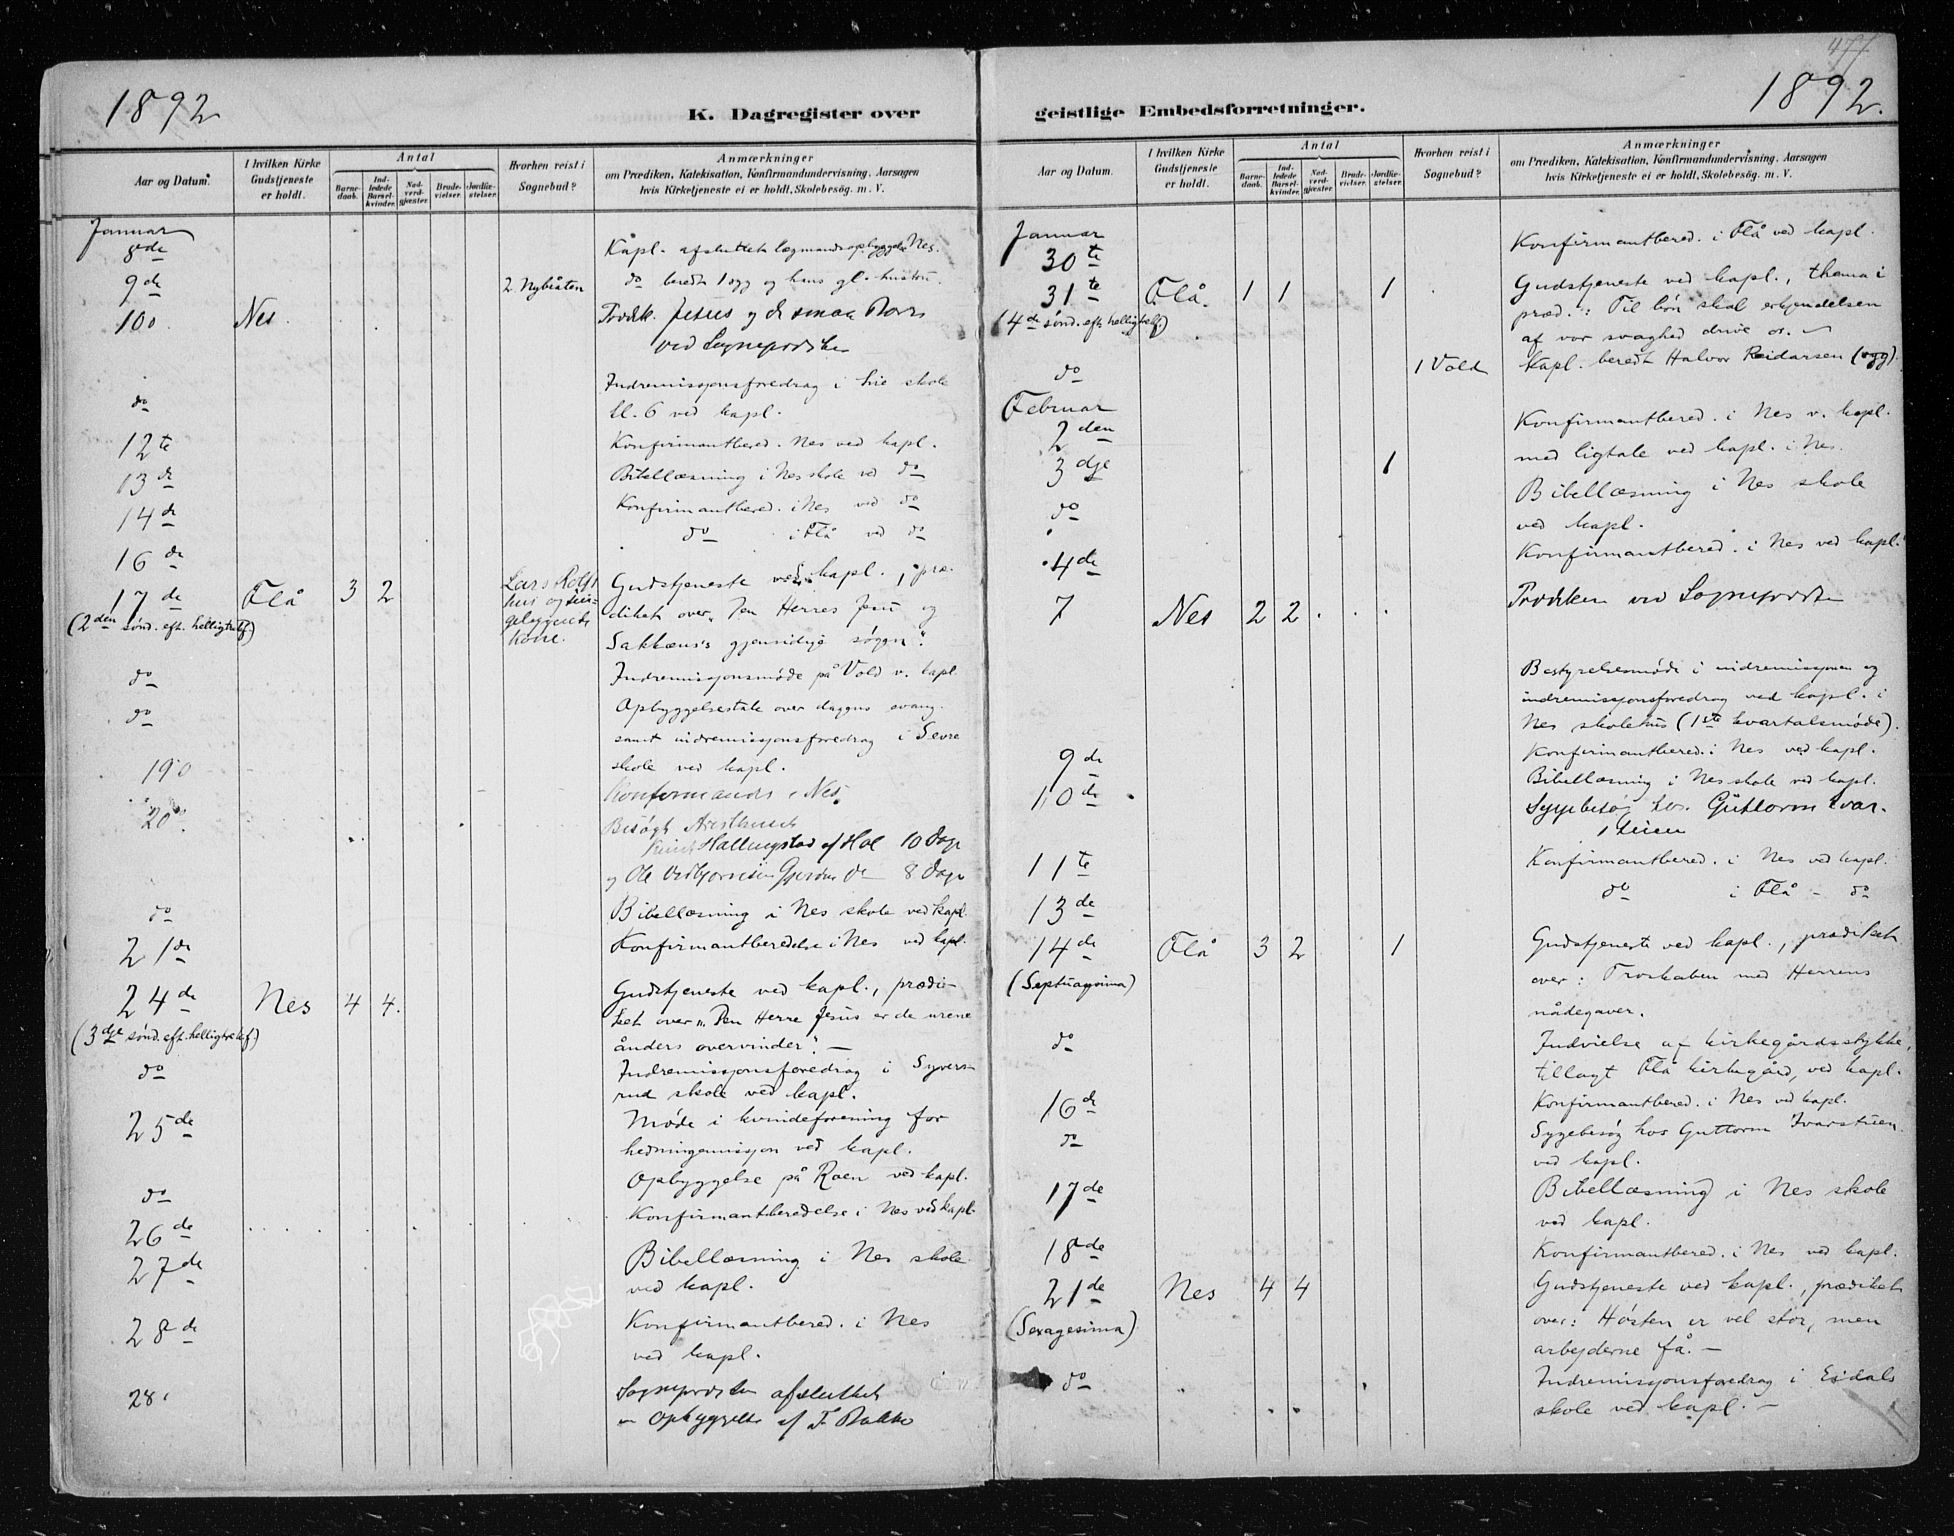 1892
K. Dagregister over
Aar og Datum.
I hvilken Kirke Gudstjeneste er holdt.
Antal
Barnedaab.
Indledede Barselkvinder.
Nadverdgjæster.
Brudevielser.
Jordfæstelser.
Hvorhen reist i Sognebud?
Anmærkninger
om Prædiken, Katekisation, Konfirmandundervisning. Aarsagen
hvis Kirketjeneste ei er holdt, Skolebesøg. m. V.
Januar
8de Kapl. afsluttet lægmandsopbyggelse Nes.
9de 2 Nybråten do beredt 1 og hans gl. hustru.
10de Nes Prædik. Jesus og de smaa Børn
ved Sognepræsten
do Indremissjonsforedrag i skole
kl. 6 ved kapl.
12te Konfirmantbered. Nes ved kapl.
13de Bibellæsning i Nes skole ved do
14de Konfirmantbered. i Nes ved do
16de do i Flå ved do
17de Flå 3 2 Lars Gudstjeneste ved kapl., præ-
(2den sønd. eft. helligtrekf.) diket over "Den Herres Jesu og
Sakkæus's gjensidige søgen".
do Indremissjonsmøde på Vold v. kapl
do Opbyggelsestale over dagens evang.
samt indremissjonsforedrag i Sevre
skole ved kapl.
19de Konfirmander i Nes.
20de Besøgt Arresthuset
Hallingstad af Hol 10 Dage
og Ole 8 Dage
do Bibellæsning i Nes skole ved kapl.
21de Konfirmantberedelse i Nes ved kapl.
24de Nes 4 4. Gudstjeneste ved kapl., prædi-
(3dje sønd. eft. helligtrekf.) ket over "Den Herre Jesus er de urene
ånders overvinder". —
do Indremissjonsforedrag i Syvers-
rud skole ved kapl.
25de Møde i kvindeforening for
hedningemissjon ved kapl.
do Opbyggelse på Roen ved kapl.
26de Konfirmantberedelse i Nes ved kapl.
27de Bibellæsning i Nes skole
ved kapl.
28de Konfirmantbered. i Nes
ved kapl.
28. Sognepræsten afsluttet
Opbyggelse af F. Bakke
477
1892.
geistlige Embedsforretninger.
Aar og Datum.
I hvilken Kirke Gudstjeneste er holdt.
Antal
Barnedaab.
Indledede Barselkvinder.
Nadverdgjæster.
Brudevielser.
Jordfæstelser.
Hvorhen reist i Sognebud?
Anmærkninger
om Prædiken, Katekisation, Konfirmandundervisning. Aarsagen
hvis Kirketjeneste ei er holdt, Skolebesøg. m. V.
Januar
30te Konfirmantbered. i Flå ved kapl.
31te Flå. 1 1 1 Gudstjeneste ved kapl., thema i
(4de sønd. eft. helligtrekf.) præd.: Til bøn skal erkjendelsen
af vor svaghed drive os. —
do 1 Vold Kapl. beredt Halvor Reidarsen (ogg).
Februar
2den Konfirmantbered. i Nes v. kapl.
3dje 1 med ligtale ved kapl. i Nes.
do Bibellæsning i Nes skole
ved kapl.
4de Konfirmantbered. i Nes ved kapl.
7 Nes 2 2 Prædiken ved Sognepræsten
Bestyrelsesmøde i indremissjonen og
indremissjonsforedrag ved kapl. i
Nes skolehus (1ste kvartalsmøde).
9de Konfirmantbered. i Nes ved kapl.
10de Bibellæsning i Nes skole ved kapl.
Sygebesøg hos Guttorm Ivar-
stuen
11te Konfirmantbered. i Nes ved kapl.
13de do i Flå - do
14de Flå 3 2 1 Gudstjeneste ved kapl., prædiket
(Septuagesima) over: Troskaben med Herrens
nådegaver.
do Indvielse af kirkegårdsstykke,
tillagt Flå kirkegård, ved kapl.
16de Konfirmantbered. i Nes ved kapl.
do Sygebesøg hos Guttorm Ivarstuen
ved kapl.
17de Bibellæsning i Nes skole
ved kapl.
18de Konfirmantbered. i Nes ved kapl.
21de Nes 4 4 Gudstjeneste ved kapl., prædiket
(Sexagesima) over: Høsten er vel stor, men
arbejderne få. —
do Indremissjonsforedrag i Eidals
skole ved kapl. —